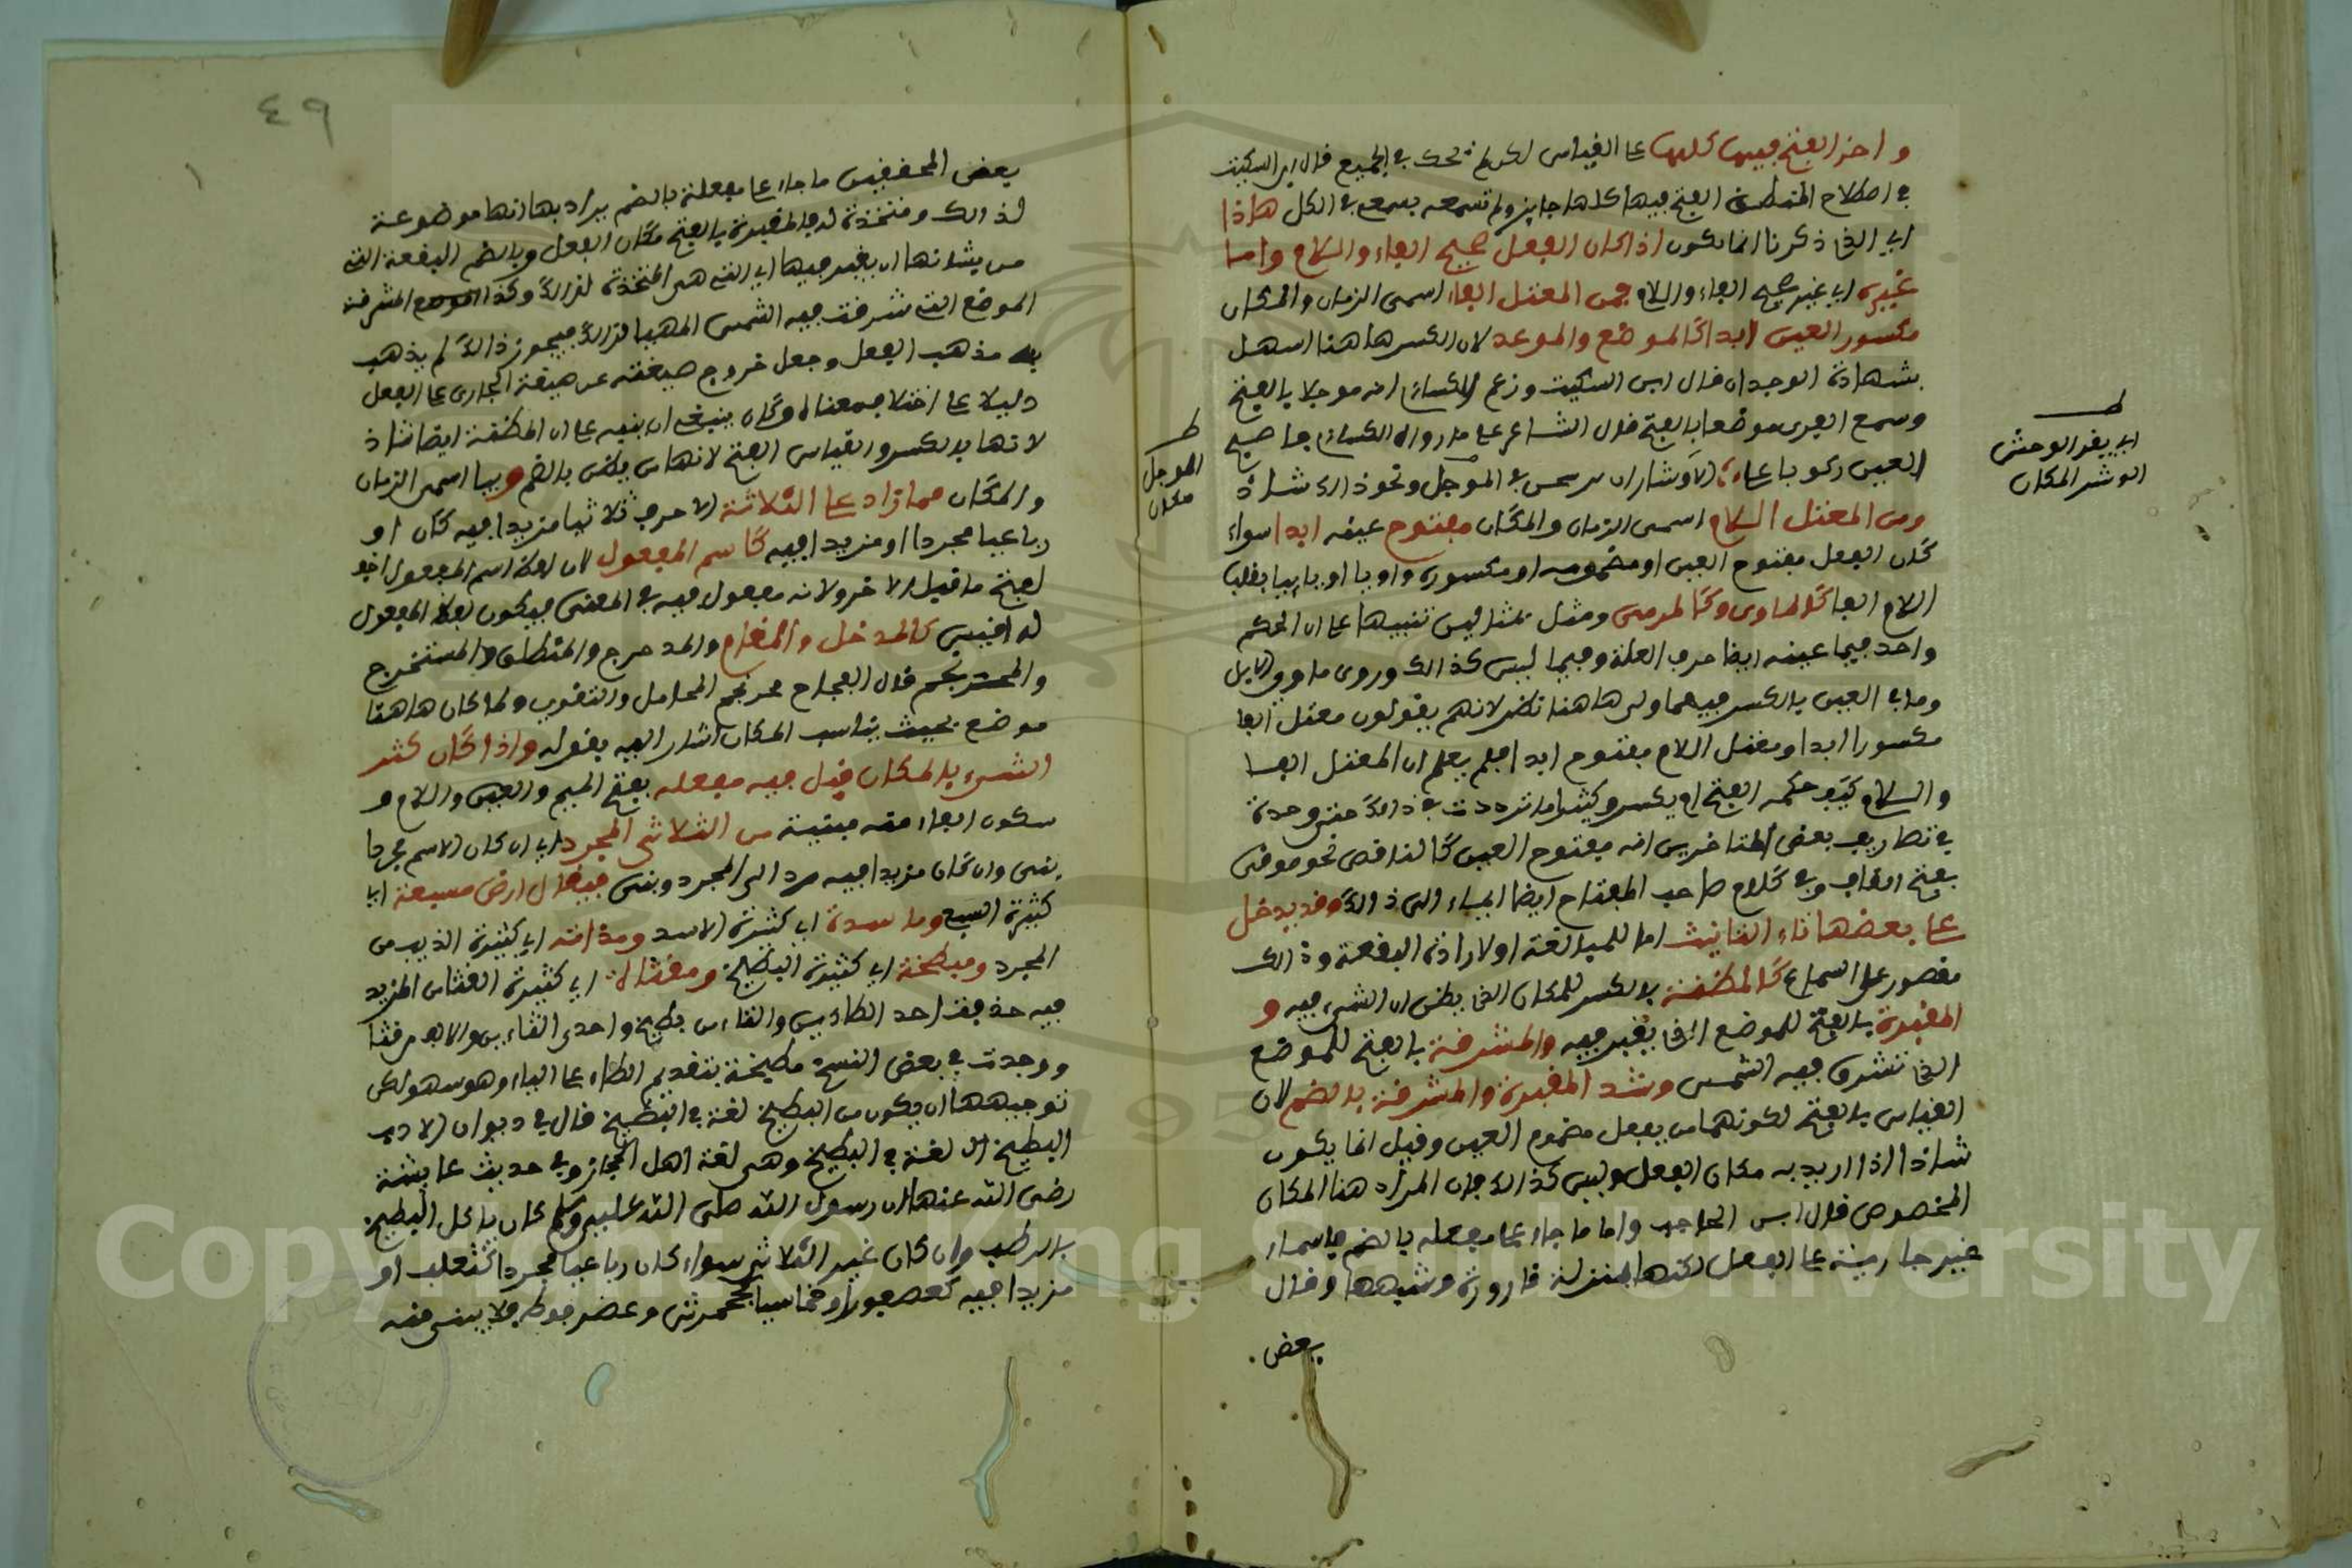 واجز الفتح فيها كلها على القياس لكن لم تحك في الجميع قال ابن السكيت
في اصلاح المنطق الفتح فيها كلها جايز ولم تسمعه يسمع في الكل هاذا
اي الذي ذكرنا انما يكون اذا كان الفعل صحيح الفاء واللام واما
غيره اي غير صحيح الفاء واللام فمن المعتل الفاء اسمى الزمان والمكان
مكسور العين ابدا كالموضع والموعد لان الكسر هاهنا اسهل
بشهادة الوجدان قال ابن السكيت وزعم الكسائي انه موجلا بالفتح
وسمع الفرى موضعا بالفتح قال الشاعر على ما رواه الكسائي فاصبح
العين ركوبا على الاوشازان يرسخن في الموجل ونحو ذالك شاذ
ومن المعتل اللام اسمى الزمان والمكان مفتوح عينه ابدا سواء
كان الفعل مفتوح العين او مضمومه او مكسوره واويا او ياييا بقلب
اللام الفا كالماوى وكالمرمى ومثل بمثالين تنبيها على ان الحكم
واحد فيما عينه ايضا حرف العلة وفيما ليس كذالك وروى ماوى الابل
وماقي العين بالكسر فيهما ولى هاهنا نظر لانهم يقولون معتل الفا
مكسورا ابدا ومعتل اللام مفتوح ابدا فلم يعلم ان المعتل الفا
واللام كيف حكمه الفتح او يكسر وكثيرا ما ترددت في ذالك حتى وجدت
في تصاريف بعض المتاخرين انه مفتوح العين كالناقص نحو موقى
بفتح القاف وفي كلام صاحب المفتاح ايضا ايماء الى ذالك وقد يدخل
على بعضها تاء التانيث اما للمبالغة او لارادة البقعة وذالك
مقصور على السماع كالمظنة بالكسر للمكان الذي يظن ان الشيء فيه و
المقبرة بالفتح للموضع الذي يقبر فيه والمشرقة بالفتح للموضع
الذي تشرق فيه الشمس وشذ المقبرة والمشرقة بالضم لان
القياس بالفتح لكونهما من يفعل مضموم العين وقيل انما يكون
شاذا اذا اريد به مكان الفعل وليس كذالك فان المراد هنا المكان
المخصوص قال ابن الحاجب واما ما جاء على مفعلة بالضم فاسماء
غير جارية على الفعل لكنها بمنزلة قارورة وشبهها وقال
بعض
ط
اي يقفز الوحش
الوشز المكان
ط
الموجل
مكان
٤٩
بعض المحققين ما جاء على مفعلة بالضم يراد بها انها موضوعة
لذالك ومتخذة له فالمقبرة بالفتح مكان الفعل وبالضم البقعة التي
من شانها ان يقبر فيها اي التي هي المتخذة لذالك وكذا الموضع المشرقة
الموضع التي شرقت فيه الشمس المهيا لذالك فيجوز ذالك لم يذهب
به مذهب الفعل وجعل خروج صيغته عن صيغة الجارى على الفعل
دليلا على اختلاف معناه وكان ينبغي ان ينبه على ان المظنة ايضا شاذ
لانها بالكسر والقياس الفتح لانها من يظن بالضم وبنا اسمى الزمان
والمكان مما زاد على الثلاثة الاحرف ثلاثيا مزيدا فيه كان او
رباعيا مجردا او مزيدا فيه كاسم المفعول لان لفظ اسم المفعول اخف
لفتح ما قبل الاخر ولانه مفعول فيه في المعنى فيكون لفظ المفعول
له اقيس كالمدخل والمقام والمدحرج والمنطلق والمستخرج
والمحرنجم قال العجاج محرنجم الجامل والنؤي ولما كان هاهنا
موضع بحيث يناسب المكان اشار اليه بقوله واذا كان كثر
الشيء بالمكان قيل فيه مفعلة بفتح الميم والعين واللام و
سكون الفاء منه مبنية من الثلاثي المجرد اي ان كان الاسم مجردا
بنى وان كان مزيدا فيه رد الى المجرد وبنى فيقال ارض مسبعة اي
كثيرة السبع وماسدة اي كثيرة الاسد ومذابة اي كثيرة الذيب من
المجرد ومبطخة اي كثيرة البطيخ ومقثاة اي كثيرة القثاء من المزيد
فيه حذفت احد الطاءين والياء من بطيخ واحدى الثاءين والالف من قثا
ووجدت في بعض النسخ مطبخة بتقديم الطاء على الباء وهو سهو لكن
توجيهها ان يكون من الطبيخ لغة في البطيخ قال في ديوان الادب
الطبيخ لغة في البطيخ وهي لغة اهل الحجاز وفي حديث عايشة
رضى الله عنها ان رسول الله صلى الله عليه وسلم كان ياكل الطبيخ
بالرطب وان كان غير الثلاثي سواء كان رباعيا مجردا كثعلب او
مزيدا فيه كعصفور او خماسيا كجحمرش وعضرفوط فلا يبنى منه
Copyright © King Saud University